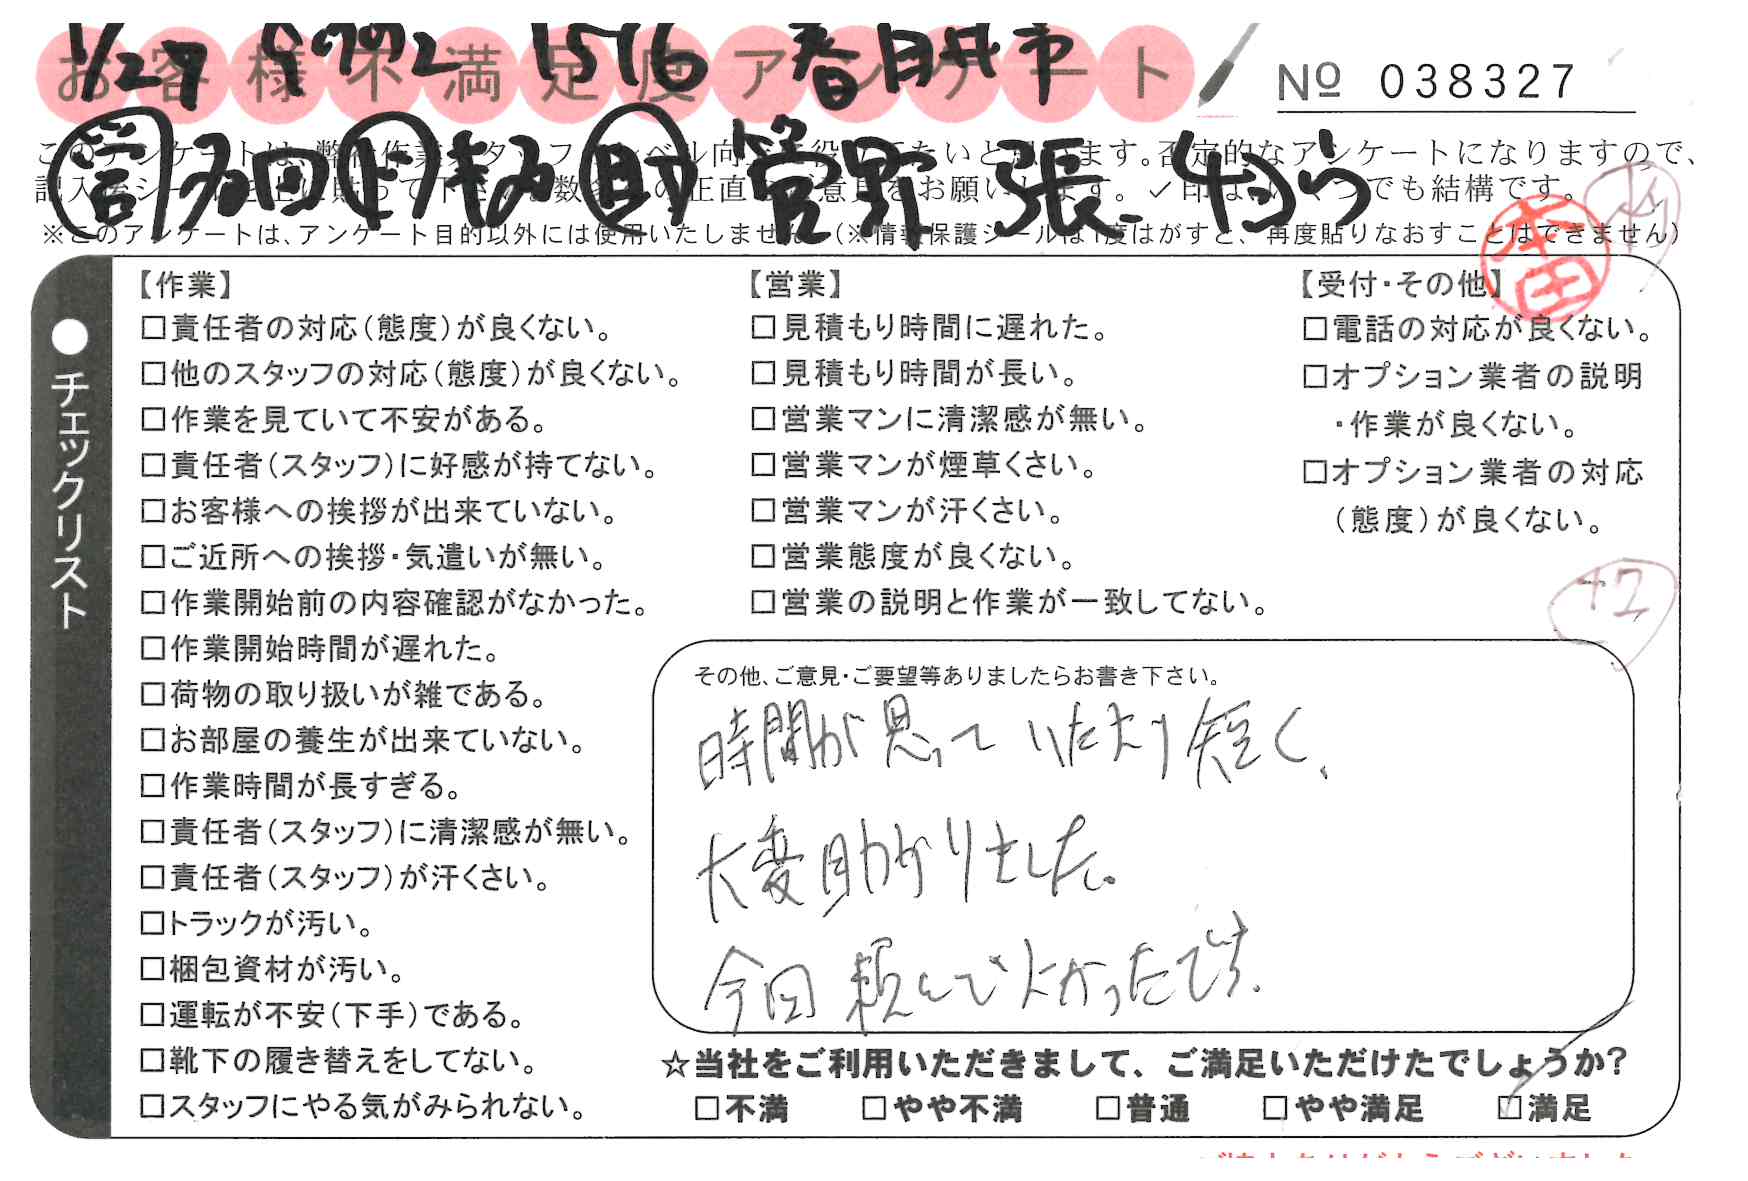 お客様不満足度アンケート
1/27 1576 春日井市
№ 038327
このアンケートは、弊社作業スタッフのレベル向上に役立てたいと思います。否定的なアンケートになりますので、
営 多田 作 助 菅野 張
※このアンケートは、アンケート目的以外には使用いたしません。(※情報保護シールは1度はがすと、再度貼りなおすことはできません)
本田
●チェックリスト
【作業】
□責任者の対応(態度)が良くない。
□他のスタッフの対応(態度)が良くない。
□作業を見ていて不安がある。
□責任者(スタッフ)に好感が持てない。
□お客様への挨拶が出来ていない。
□ご近所への挨拶・気遣いが無い。
□作業開始前の内容確認がなかった。
□作業開始時間が遅れた。
□荷物の取り扱いが雑である。
□お部屋の養生が出来ていない。
□作業時間が長すぎる。
□責任者(スタッフ)に清潔感が無い。
□責任者(スタッフ)が汗くさい。
□トラックが汚い。
□梱包資材が汚い。
□運転が不安(下手)である。
□靴下の履き替えをしてない。
□スタッフにやる気がみられない。
【営業】
□見積もり時間に遅れた。
□見積もり時間が長い。
□営業マンに清潔感が無い。
□営業マンが煙草くさい。
□営業マンが汗くさい。
□営業態度が良くない。
□営業の説明と作業が一致してない。
【受付・その他】
□電話の対応が良くない。
□オプション業者の説明
・作業が良くない。
□オプション業者の対応
(態度)が良くない。
+2
その他、ご意見・ご要望等ありましたらお書き下さい。
時間が思っていたより短く、
大変助かりました。
今回頼んでよかったです。
☆当社をご利用いただきまして、ご満足いただけたでしょうか?
□不満 □やや不満 □普通 □やや満足 ☑満足